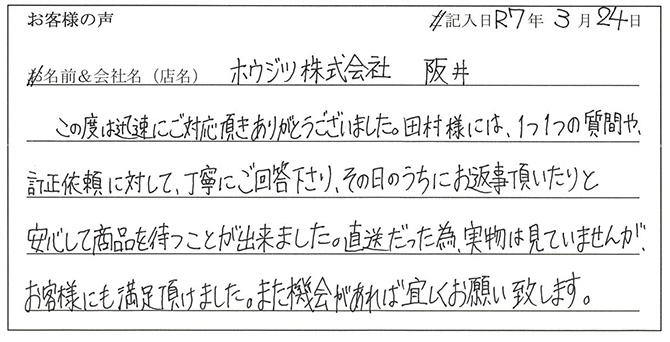 お客様の声 記入日R7年3月24日
お名前&会社名（店名） ホウジツ株式会社 阪井
この度は迅速にご対応頂きありがとうございました。田村様には、1つ1つの質問や、
訂正依頼に対して、丁寧にご回答下さり、その日のうちにお返事頂いたりと
安心して商品を待つことが出来ました。直送だった為、実物は見ていませんが、
お客様にも満足頂けました。また機会があれば宜しくお願い致します。